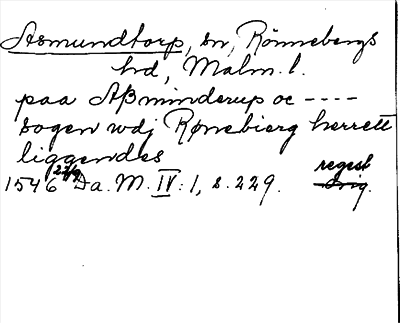 Asmundtorp, sn, Rönnebergs
hd, Malm. l.
paa Aßminderup oc ----
sogen udj Rønebierg herrett
liggendes
1546 22/9 Da. M. IV: 1, s. 229. regest
Orig.